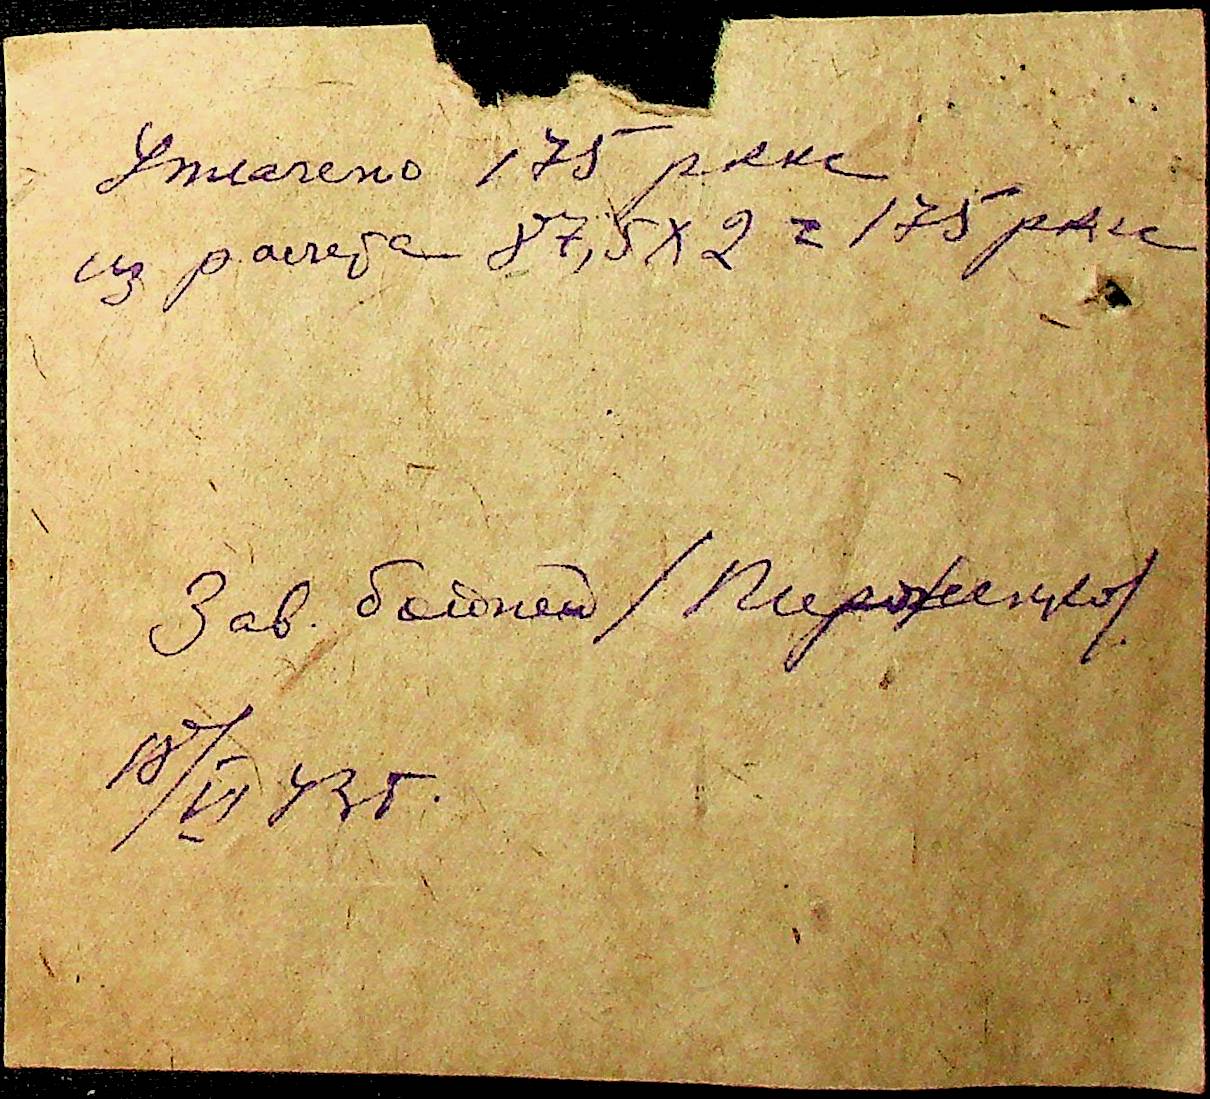 Уплачено 175 рккс
из расчета 87,5 х 2 = 175 рккс
Зав. бойней /Пироженко/
18/VI 43 г.